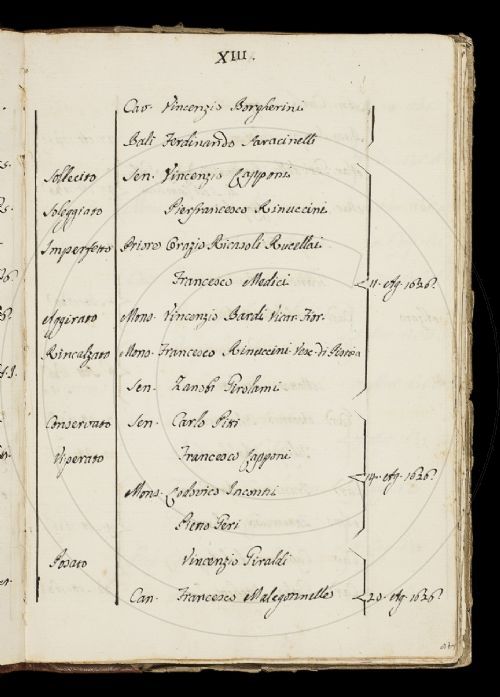 XIII.
Cav. Vincenzio Borgherini
Balì Ferdinando Saracinelli
Sollecito Sen. Vincenzio Capponi
Soleggiato Pierfrancesco Rinuccini
Imperfetto Priore Orazio Ricasoli Rucellai
Francesco Medici 11. Ag. 1626?
Aggirato Mons. Vincenzio Bardi Vicar. Fior.
Rincalzato Mons. Francesco Rinuccini Vesc. di Pistoia
Sen. Zanobi Girolami
Conservato Sen. Carlo Pitti
Viperato Francesco Capponi
14. Ag. 1626?
Mons. Lodovico Incontri
Piero Geri
Posato Vincenzio Giraldi
Can. Francesco Malegonnelle 20. Ag. 1626?